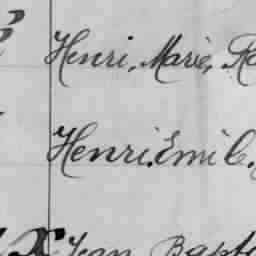 Henri, Marie,
Henri. Emile.
Jean Bapt